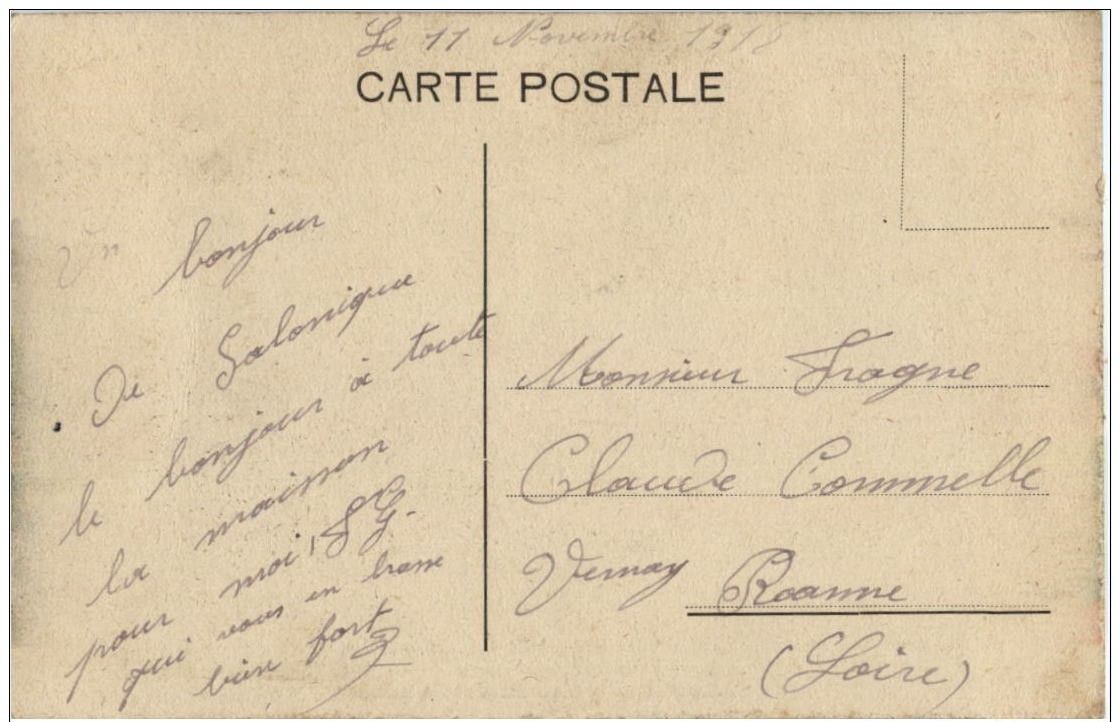 Le 11 Novembre 1918
CARTE POSTALE
Un bonjour
De Salonique
le bonjour à toute
la maisson
pour moi
qui vous en brasse
bien fort
Monsieur Fragne
Claude Commelle
Vernay Roanne
(Loire)